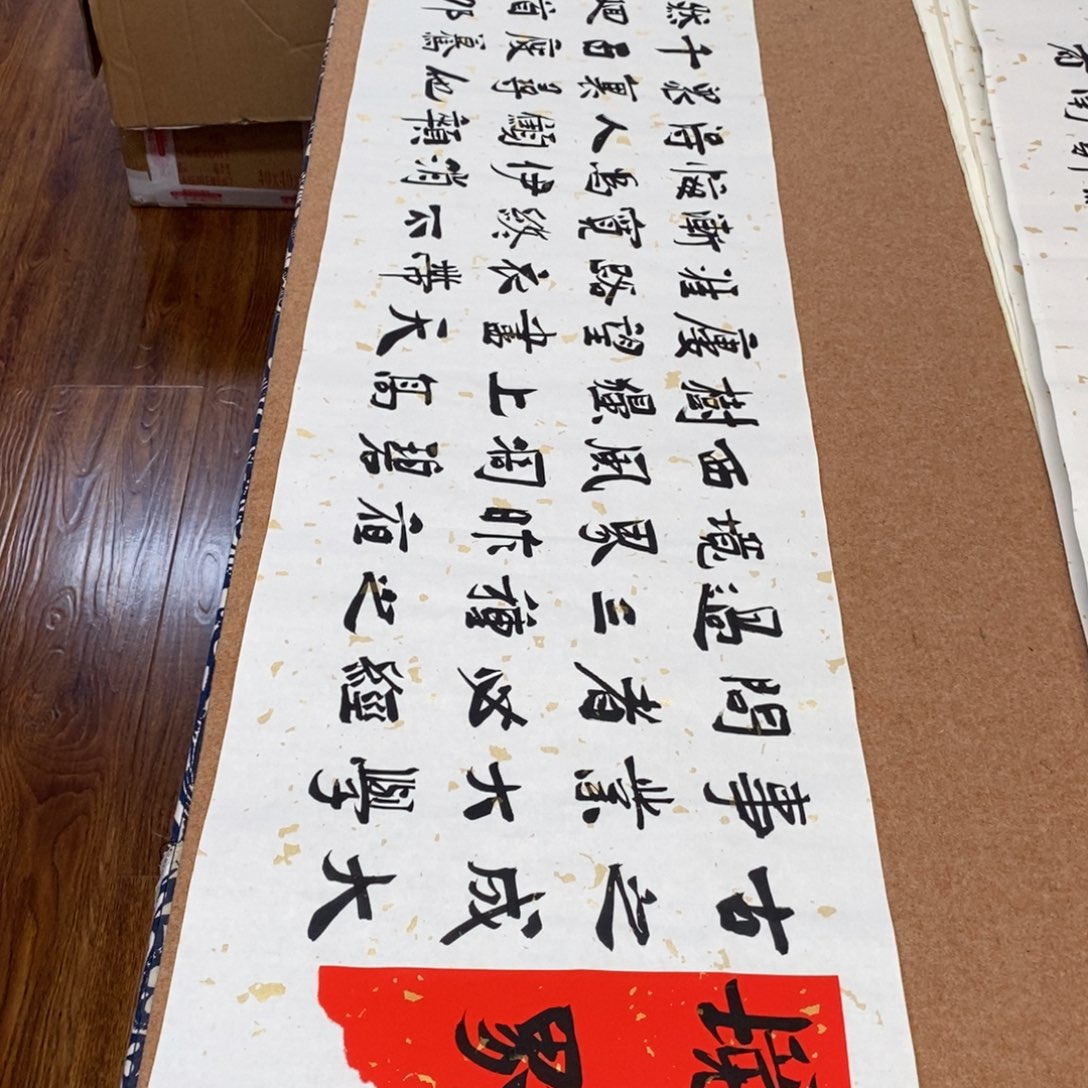 境界
古之成大
事業大學
問者必經
過三種之
境界昨夜
西風凋碧
樹獨上高
樓望盡天
涯路衣帶
漸寬終不
悔為伊消
得人
眾裏尋他
千百度驀
然迴首那